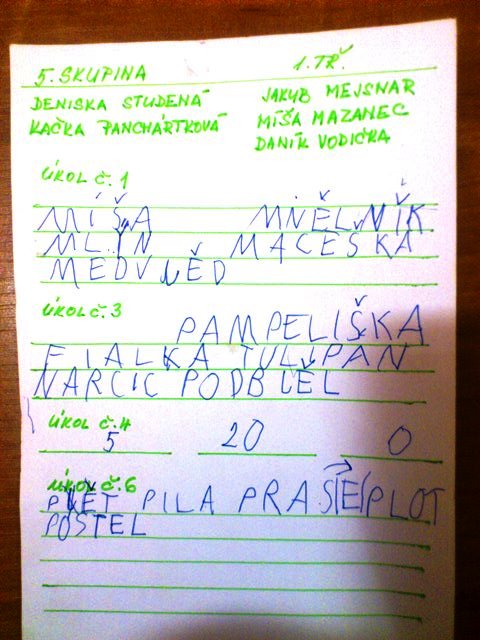 5. SKUPINA 1. TŘ.
DENISKA STUDENÁ JAKUB MEJSNAR
KAČKA PANCHÁRTKOVÁ MÍŠA MAZANEC
DANÍK VODIČKA
ÚKOL Č. 1
MÍŠA MNĚLNÍK
MLÝN MACEŠKA
MEDVĚD
ÚKOL Č. 3
PAMPELIŠKA
FIALKA TULIPAN
NARCIC PODBĚL
ÚKOL Č. 4
5 20 0
ÚKOL Č. 6
PĚT PILA PLOT
POSTEL